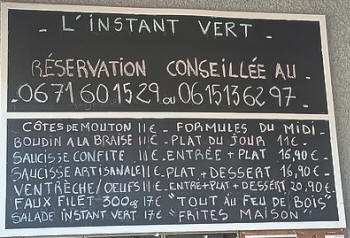 - L'INSTANT VERT -
RÉSERVATION CONSEILLÉE AU
0671601529 ou 0615136297
CÔTES DE MOUTON 11€ - FORMULES DU MIDI -
BOUDIN A LA BRAISE 11€ - PLAT DU JOUR 11€
SAUCISSE CONFITE 11€ - ENTRÉE + PLAT 16,90€ -
SAUCISSE ARTISANALE 11€ - PLAT + DESSERT 16,90€ -
VENTRÈCHE/OEUFS 11€ - ENTRE+PLAT+DESSERT 20,90€ -
FAUX FILET 300g 17€ "TOUT AU FEU DE BOIS"
SALADE INSTANT VERT 17€ "FRITES MAISON"